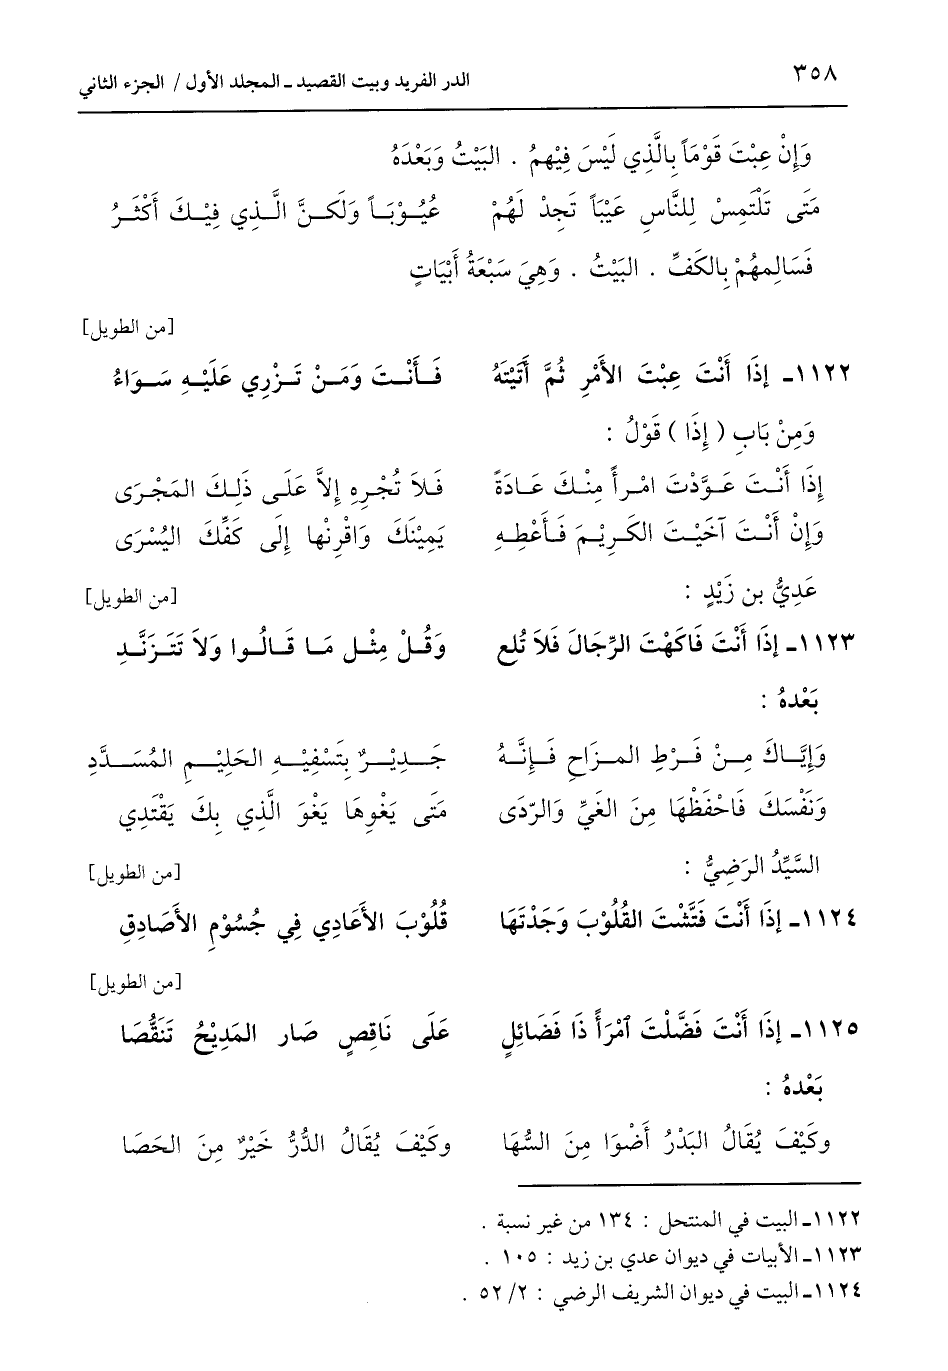 ٣٥٨
الدر الفريد وبيت القصيد ـ المجلد الأول / الجزء الثاني
وَإِنْ عِبْتَ قَوْمَاً بِالَّذِي لَيْسَ فِيْهِمُ . البَيْتُ وَبَعْدَهُ
مَتَى تَلْتَمِسْ لِلنَّاسِ عَيْبَاً تَجِدْ لَهُمْ عُيُوْبَاً وَلَكِنَّ الَّذِي فِيْكَ أَكْثَرُ
فَسَالِمهُمْ بِالكَفِّ . البَيْتُ . وَهِيَ سَبْعَةُ أَبْيَاتٍ
[من الطويل]
١١٢٢ـ إِذَا أَنْتَ عِبْتَ الأَمْرِ ثُمَّ أَتَيْتَهُ فَأَنْتَ وَمَنْ تَزْرِي عَلَيْهِ سَوَاءُ
وَمِنْ بَابِ ( إِذَا ) قَوْلُ :
إِذَا أَنْتَ عَوَّدْتَ امْرأً مِنْكَ عَادَةً فَلاَ تُجْرِهِ إِلاَّ عَلَى ذَلِكَ المَجْرَى
وَإِنْ أَنْتَ آخَيْتَ الكَرِيْمَ فَأَعْطِهِ يَمِيْنَكَ وَاقْرِنْها إِلَى كَفِّكَ اليُسْرَى
عَدِيُّ بن زَيْدٍ :
[من الطويل]
١١٢٣ـ إِذَا أَنْتَ فَاكَهْتَ الرِّجَالَ فَلاَ تُلعِ وَقُلْ مِثْلِ مَا قَالُوا وَلاَ تَتَزَنَّدِ
بَعْدهُ :
وَإِيَّاكَ مِنْ فَرْطِ المزَاحِ فَإِنَّهُ جَدِيْرٌ بِتَسْفِيْهِ الحَلِيْمِ المُسَدَّدِ
وَنَفْسَكَ فَاحْفَظْهَا مِنَ الغَيِّ وَالرّدَى مَتَى يَغْوِهَا يَغْوَ الَّذِي بِكَ يَقْتَدِي
السَّيِّدُ الرَضِيُّ :
[من الطويل]
١١٢٤ـ إِذَا أَنْتَ فَتَّشْتَ القُلُوْبَ وَجَدْتَهَا قُلُوْبَ الأَعَادِي فِي جُسُوْمِ الأَصَادِقِ
[من الطويل]
١١٢٥ـ إِذَا أَنْتَ فَضَّلْتَ ٱمْرَأً ذَا فَضَائِلٍ عَلَى نَاقِصٍ صَار المَدِيْحُ تَنَقُّصَا
بَعْدهُ :
وكَيْفَ يُقَالُ البَدْرُ أَضْوَا مِنَ السُّهَا وكَيْفَ يُقَالُ الدُّرُّ خَيْرٌ مِنَ الحَصَا
١١٢٢ـ البيت في المنتحل : ١٣٤ من غير نسبة .
١١٢٣ـ الأبيات في ديوان عدي بن زيد : ١٠٥ .
١١٢٤ـ البيت في ديوان الشريف الرضي : ٢/ ٥٢ .